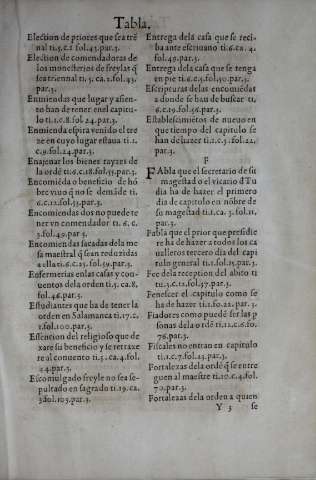 Tabla.
Election de priores que sea trē
nal ti.5.c.1 fol.43.par.3.
Election de comendadoras de
los monesterios de freylas q̄
sea triennal ti.5.ca.2.fol.43.
par.3.
Enmiendas que lugar y asien-
to han de tener en el capitu-
lo ti.1.c.8.fol.24.par.3.
Enmienda espira venido el tre
ze en cuyo lugar estaua ti.1.
c.9.fol.24.par.3.
Enajenar los bienes rayzes de
la ordē ti.6.c.18.fol.55.par.3.
Encomiēda o beneficio de hō
bre viuo q̄ no se demāde ti.
6.c.12.fol.53.par.3.
Encomiendas dos no puede te
ner vn comendador ti.6.c.
3.fol.49.par.3
Encomiendas sacadas dela me
sa maestral q̄ sean reduzidas
a ella ti.6.c.25.fol.59.par.3.
Enfermerias enlas casas y con-
uentos dela orden ti.5.ca.8.
fol.46.par.3.
Estudiantes que ha de tener la
orden en Salamanca ti.17.c.
1.fol.100.par.3.
Essencion del religioso que de
xare su beneficio y se retraxe
re al conuento ti.5.ca.4.fol.
44.par.3.
Escomulgado freyle no sea se-
pultado en sagrado ti.19.ca.
3.fol.103.par.3.
Entrega dela casa que se reci-
ba ante escriuano ti.6.ca.4.
fol.49.par.3.
Entrega dela casa que se tenga
en pie ti.6.c.5.fol.50.par.3.
Escripturas delas encomiēdas
a donde se han de buscar ti.
6.c.19.fol.56.par.3.
Establescimiētos de nueuo en
que tiempo del capitulo se
han de hazer ti.1.c.3.fol.22.
par.3.
F
FAbla que el secretario de su
magestad o el vicario d̄ Tu
dia ha de hazer el primero
dia de capitulo en nōbre de
su magestad ti.1.ca.3.fol.21.
par.3.
Fabla que el prior que presidie
re ha de hazer a todos los ca
ualleros tercero dia del capi
tulo general ti.1.fol.25.par.3.
Fee dela reception del abito ti
tu.3.c.12.fol.37.par.3.
Fenescer el capitulo como se
ha de hazer ti.1.fo.22.par.3.
Fiadores como puedē ser las p̄
sonas dela ordē ti.12.c.6.fo.
76.par.3.
Fiscales no entran en capitulo
ti.1.c.7.fol.23.par.3.
Fortalezas dela ordē q̄ se entre
guen al maestre ti.10.c.4.fol.
70.par.3.
Fortalezas dela orden a quien
Y 3 se